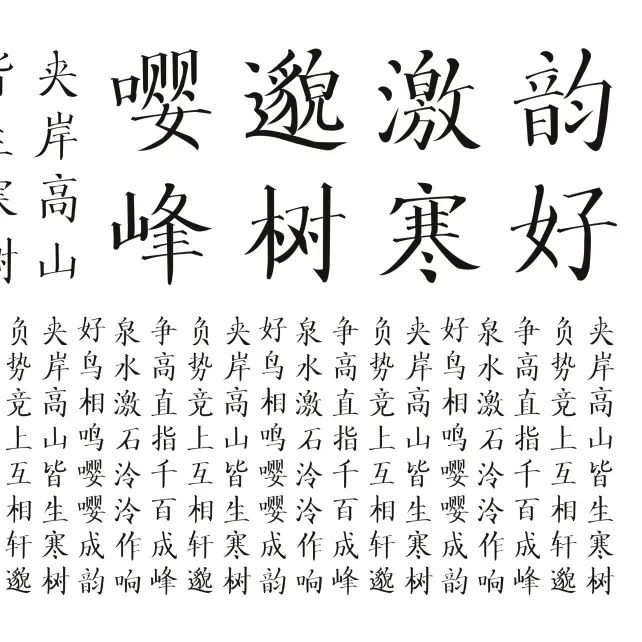 嘤邈激韵
峰树寒好
夹岸高山
夹岸高山皆生寒树
负势竞上互相轩邈
争高直指千百成峰
泉水激石泠泠作响
好鸟相鸣嘤嘤成韵
夹岸高山皆生寒树
负势竞上互相轩邈
争高直指千百成峰
泉水激石泠泠作响
好鸟相鸣嘤嘤成韵
夹岸高山皆生寒树
负势竞上互相轩邈
争高直指千百成峰
泉水激石泠泠作响
好鸟相鸣嘤嘤成韵
夹岸高山皆生寒树
负势竞上互相轩邈